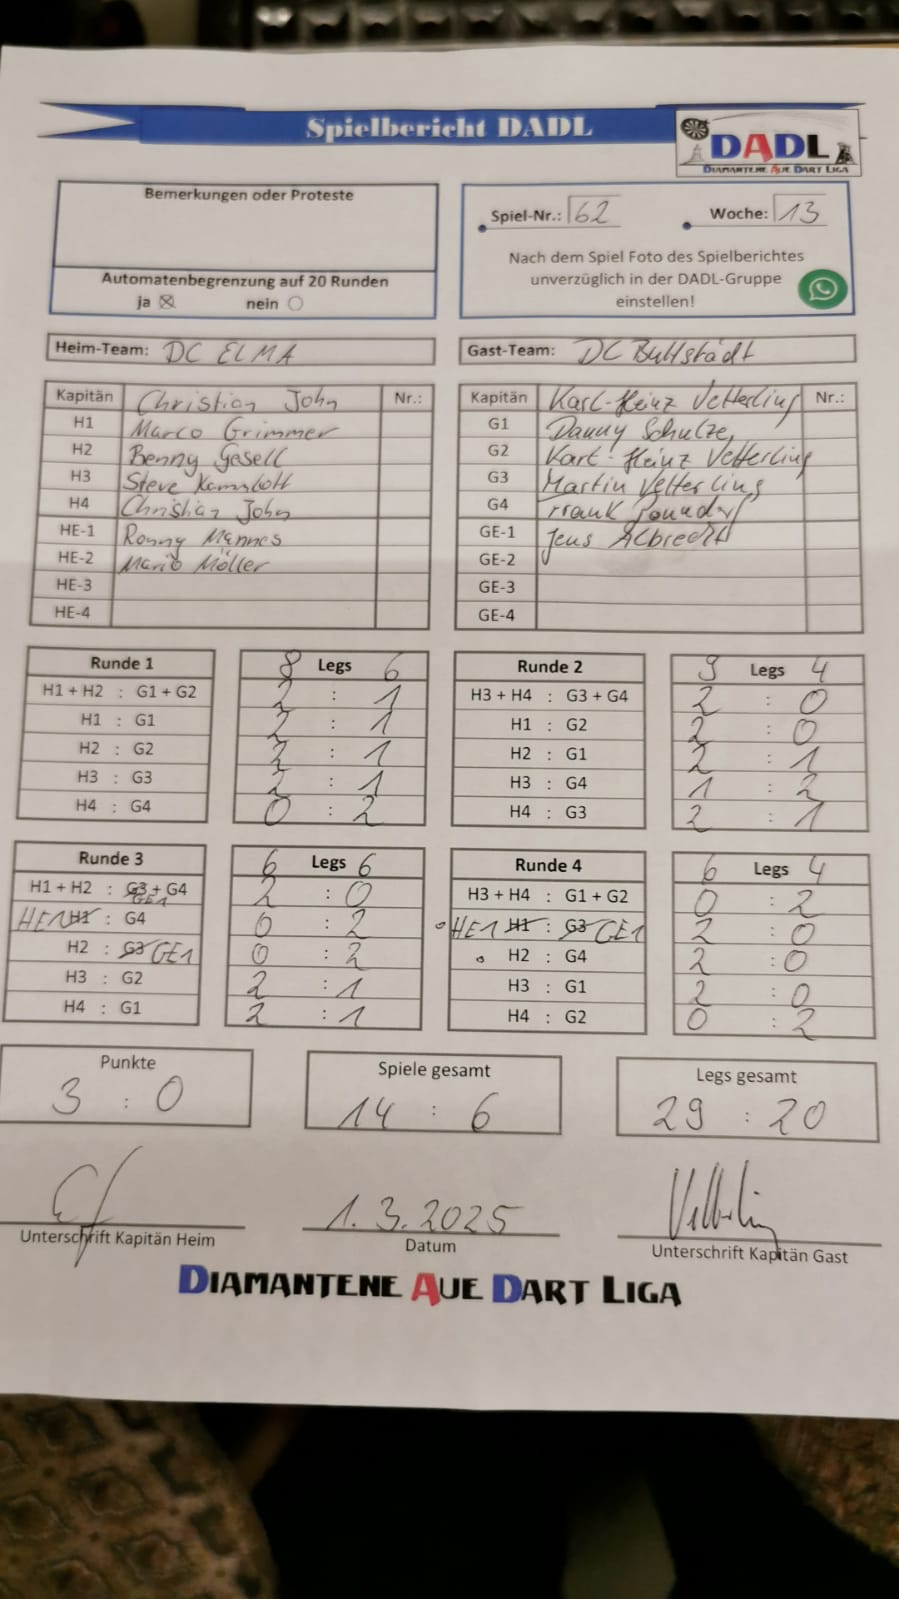 Spielbericht DADL
DADL
DIAMANTENE AUE DART LIGA
Bemerkungen oder Proteste
Automatenbegrenzung auf 20 Runden
ja ☒ nein ○
Spiel-Nr.: 62 Woche: 13
Nach dem Spiel Foto des Spielberichtes
unverzüglich in der DADL-Gruppe
einstellen!
Heim-Team: DC ELMA
Gast-Team: DC Buttstädt
Kapitän Christian John Nr.:
H1 Marco Grimmer
H2 Benny Gesell
H3 Steve
H4 Christian John
HE-1 Ronny Männes
HE-2 Mario Möller
HE-3
HE-4
Kapitän Karl-Heinz Vetterling Nr.:
G1 Danny Schulze
G2 Karl-Heinz Vetterling
G3 Martin Vetterling
G4 Frank
GE-1 Jens Albrecht
GE-2
GE-3
GE-4
Runde 1 8 Legs 6
H1 + H2 : G1 + G2 2 : 1
H1 : G1 2 : 1
H2 : G2 2 : 1
H3 : G3 2 : 1
H4 : G4 0 : 2
Runde 2 9 Legs 4
H3 + H4 : G3 + G4 2 : 0
H1 : G2 2 : 0
H2 : G1 2 : 1
H3 : G4 1 : 2
H4 : G3 2 : 1
Runde 3 6 Legs 6
H1 + H2 : G3 + G4 2 : 0
GE1
HE1 H1 : G4 0 : 2
H2 : G3 GE1 0 : 2
H3 : G2 2 : 1
H4 : G1 2 : 1
Runde 4 6 Legs 4
H3 + H4 : G1 + G2 0 : 2
HE1 H1 : G3 GE1 2 : 0
H2 : G4 2 : 0
H3 : G1 2 : 0
H4 : G2 0 : 2
Punkte
3 : 0
Spiele gesamt
14 : 6
Legs gesamt
29 : 20
Unterschrift Kapitän Heim
1.3.2025
Datum
Vetterling
Unterschrift Kapitän Gast
DIAMANTENE AUE DART LIGA